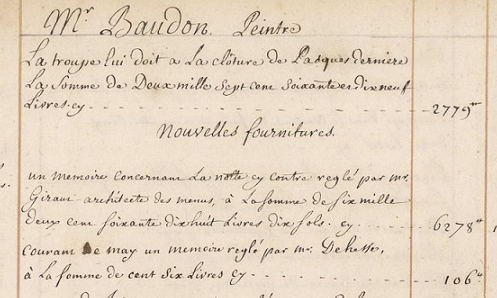 Mr. Baudon. Peintre
La troupe lui doit a La clôture de Pasques derniere
La Somme de Deux mille Sept cent Soixante et dix neuf
Livres. cy 2779tt
Nouvelles fournitures.
un memoire concernant La notte cy contre reglé par mr.
Giraut architecte des menus, à La somme de six mille
deux cent soixante dix huit Livres dix sols. cy 6278tt 1
Courant de may un memoire reglé par Mr. Dehesse,
à La somme de cent six Livres cy 106tt